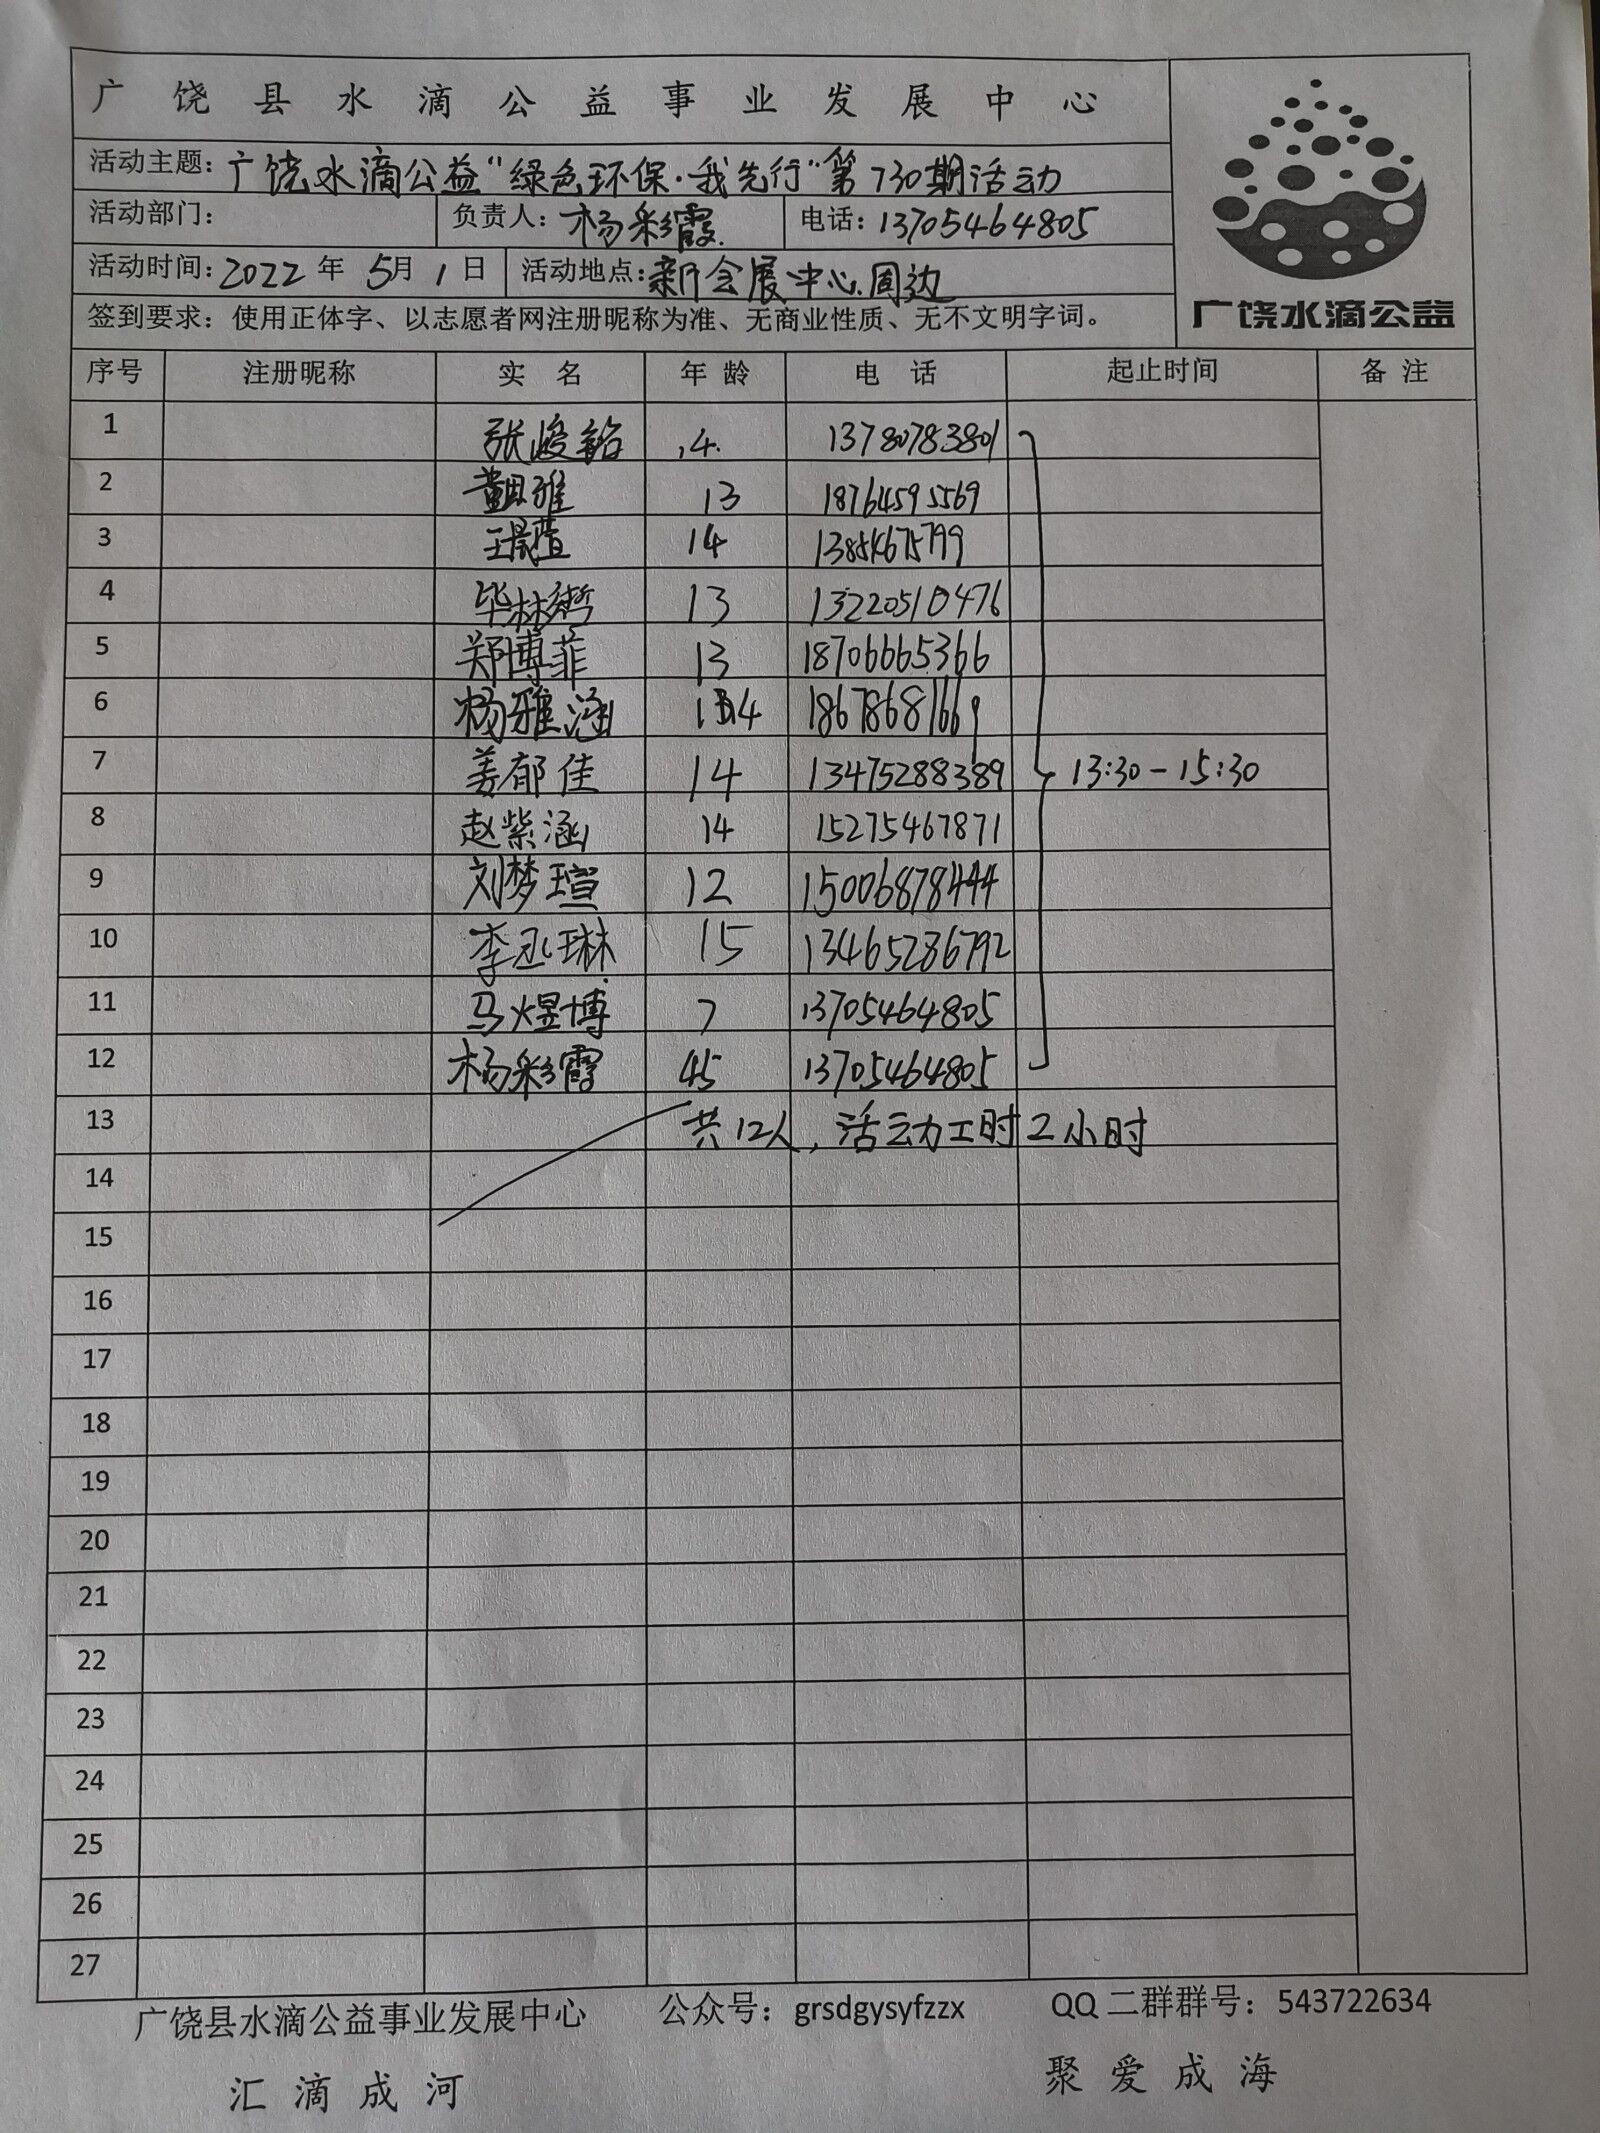 广饶县水滴公益事业发展中心
活动主题：广饶水滴公益“绿色环保·我先行”第730期活动
活动部门： 负责人：杨彩霞 电话：13705464805
活动时间：2022年5月1日 活动地点：新会展中心周边
广饶水滴公益
签到要求：使用正体字、以志愿者网注册昵称为准、无商业性质、无不文明字词。
序号 注册昵称 实名 年龄 电话 起止时间 备注
1 张峻铭 14 13780783801
2 13 18764595569
3 14
4 毕林 13 13220510476
5 郑博菲 13 18706665366
6 杨雅涵 14 18678681669
7 姜郁佳 14 13475288389 13:30-15:30
8 赵紫涵 14 15275467871
9 刘梦瑄 12 15006878444
10 李丞琳 15 13465286792
11 马煜博 7 13705464805
12 杨彩霞 45 13705464805
13 共12人，活动工时2小时
14
15
16
17
18
19
20
21
22
23
24
25
26
27
广饶县水滴公益事业发展中心 公众号：grsdgysyfzzx QQ二群群号：543722634
汇滴成河 聚爱成海